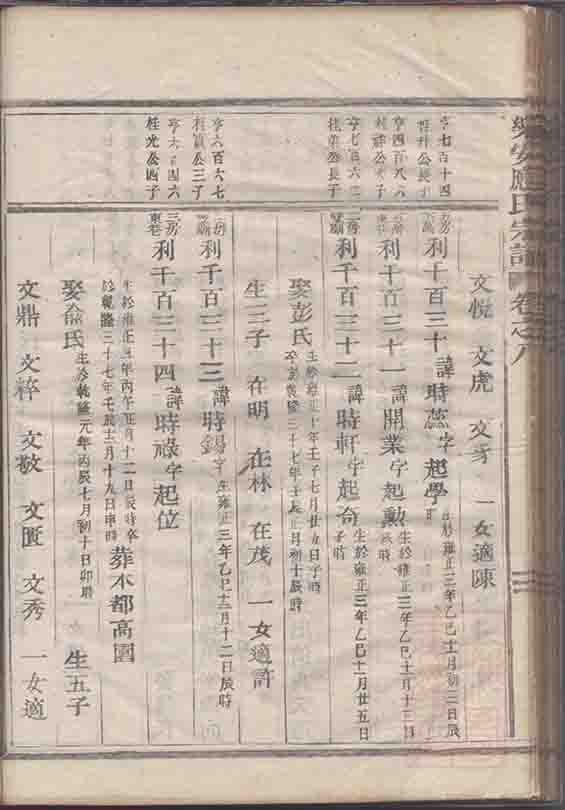 應氏宗譜 卷之八
文悅 文虎 文秀 一女適陳
亨七百十四
公長子
三房
利千百三十 諱時蕊字起學
生於雍正三年乙巳十月初三日辰時
亨四百八六
公子
利千百三十一 諱開業字起勳
生於雍正三年乙巳十月十三日
時
亨七百六二
公長子
二房
利千百三十二 諱時軒字起奇
生於雍正三年乙巳十一月廿五日
子時
娶彭氏
生於雍正十年壬子七月廿五日子時
三十七年壬辰正月初十辰時
生三子 在明 在林 在茂 一女適許
亨六百六七
公三子
利千百三十三 諱時錫字
生雍正三年乙巳十二月十二日辰時
亨六百四六
桂光公四子
三房
東巷
利千百三十四 諱時祿字起位
生於雍正四年丙午正月十二日辰時卒
於乾隆三十七年壬辰十二月十九日申時
葬本都高園
娶俞氏
生於乾隆元年丙辰七月初十日卯時
生五子
文鼎 文粹 文敬 文匡 文秀 一女適